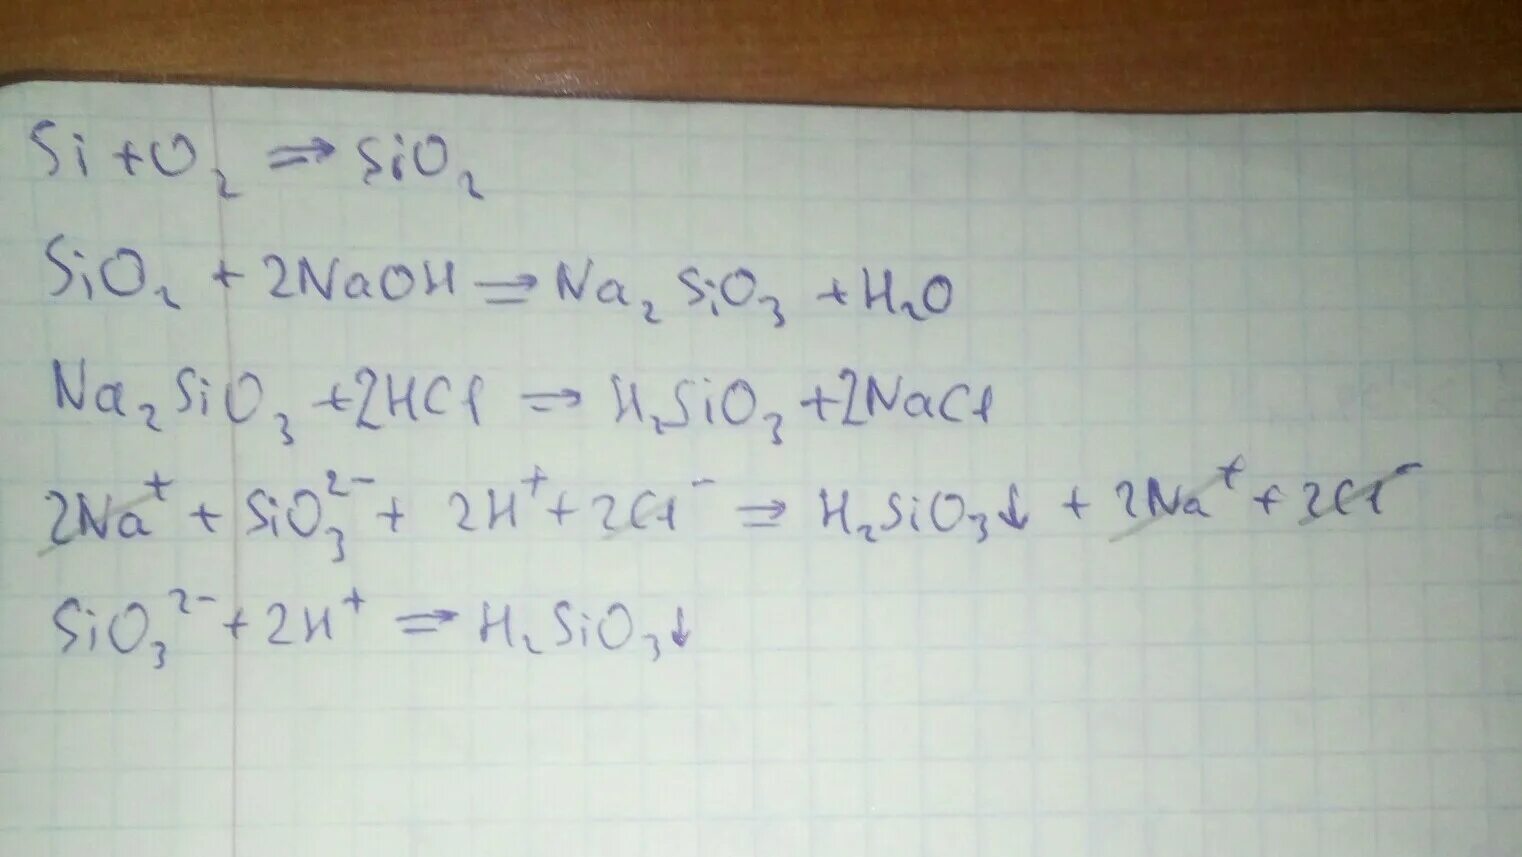 Si + O₂ ⇒ SiO₂
SiO₂ + 2NaOH ⇒ Na₂SiO₃ + H₂O
Na₂SiO₃ + 2HCl ⇒ H₂SiO₃ + 2NaCl
2Na⁺ + SiO₃²⁻ + 2H⁺ + 2Cl⁻ ⇒ H₂SiO₃↓ + 2Na⁺ + 2Cl⁻
SiO₃²⁻ + 2H⁺ ⇒ H₂SiO₃↓